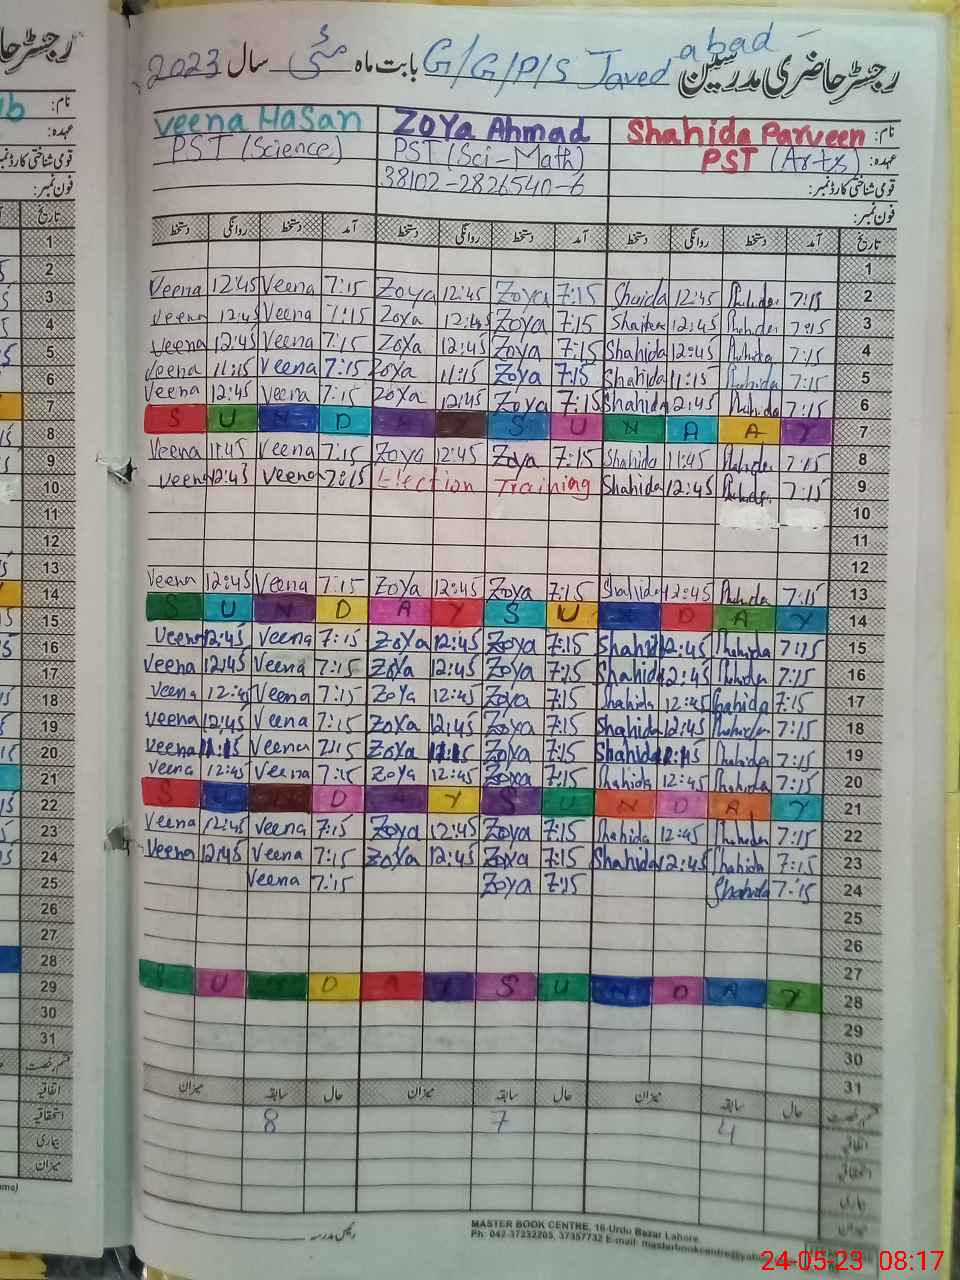 رجسٹر حاضری مدرسین G/G/P/S Javed abad بابت ماہ مئی سال 2023
نام: Shahida Parveen ZoYa Ahmad Veena HaSan
عہدہ: PST (Arts) PST (Sci-Math) PST (Science)
قومی شناختی کارڈ نمبر: 38102-2826540-6
فون نمبر:
تاریخ آمد دستخط روانگی دستخط آمد دستخط روانگی دستخط آمد دستخط روانگی دستخط
1
Veena 12:45 Veena 7:15 Zoya 12:45 Zoya 7:15 Shaida 12:45 7:15 2
Veena 12:45 Veena 7:15 ZoYa 12:45 Zoya 7:15 12:45 7:15 3
Veena 12:45 Veena 7:15 ZoYa 12:45 Zoya 7:15 Shahida 12:45 7:15 4
Veena 11:15 Veena 7:15 Zoya 11:15 Zoya 7:15 Shahida 11:15 7:15 5
Veena 12:45 Veena 7:15 ZoYa 12:45 Zoya 7:15 Shahida 12:45 7:15 6
S U N D A Y S U N D A Y 7
Veena 11:45 Veena 7:15 Zoya 12:45 Zoya 7:15 Shahida 11:45 7:15 8
Veena 12:45 Veena 7:15 Election Training Shahida 12:45 7:15 9
10
11
12
Veena 12:45 Veena 7:15 ZoYa 12:45 Zoya 7:15 Shahida 12:45 7:15 13
S U N D A Y S U N D A Y 14
Veena 12:45 Veena 7:15 ZoYa 12:45 Zoya 7:15 Shahida 12:45 7:15 15
Veena 12:45 Veena 7:15 ZoYa 12:45 Zoya 7:15 Shahida 12:45 7:15 16
Veena 12:45 Veena 7:15 ZoYa 12:45 Zoya 7:15 Shahida 12:45 Shahida 7:15 17
Veena 12:45 Veena 7:15 ZoYa 12:45 Zoya 7:15 Shahida 12:45 7:15 18
Veena 11:15 Veena 7:15 ZoYa 11:15 Zoya 7:15 Shahida 7:15 19
Veena 12:45 Veena 7:15 ZoYa 12:45 Zoya 7:15 Shahida 12:45 7:15 20
S U N D A Y S U N D A Y 21
Veena 12:45 Veena 7:15 Zoya 12:45 Zoya 7:15 Shahida 12:45 7:15 22
Veena 12:45 Veena 7:15 ZoYa 12:45 Zoya 7:15 Shahida 12:45 Shahida 7:15 23
Veena 7:15 Zoya 7:15 Shahida 7:15 24
25
26
27
S U N D A Y S U N D A Y 28
29
30
31
قسم رخصت حال سابقہ میزان حال سابقہ میزان حال سابقہ میزان
8 7 4
اتفاقیہ
استحقاقیہ
بیماری
میزان
رئیس مدرسہ
MASTER BOOK CENTRE, 16-Urdu Bazar Lahore
Ph: 042-37232205, 37357732 E-mail: masterbookcentre@yahoo
رجسٹر حا
نام:
عہدہ:
قومی شناختی کارڈ نمبر
فون نمبر:
تاریخ
1
2
3
4
5
6
7
8
9
10
11
12
13
14
15
16
17
18
19
20
21
22
23
24
25
26
27
28
29
30
31
قسم رخصت
اتفاقیہ
استحقاقیہ
بیماری
میزان
24-05-23 08:17